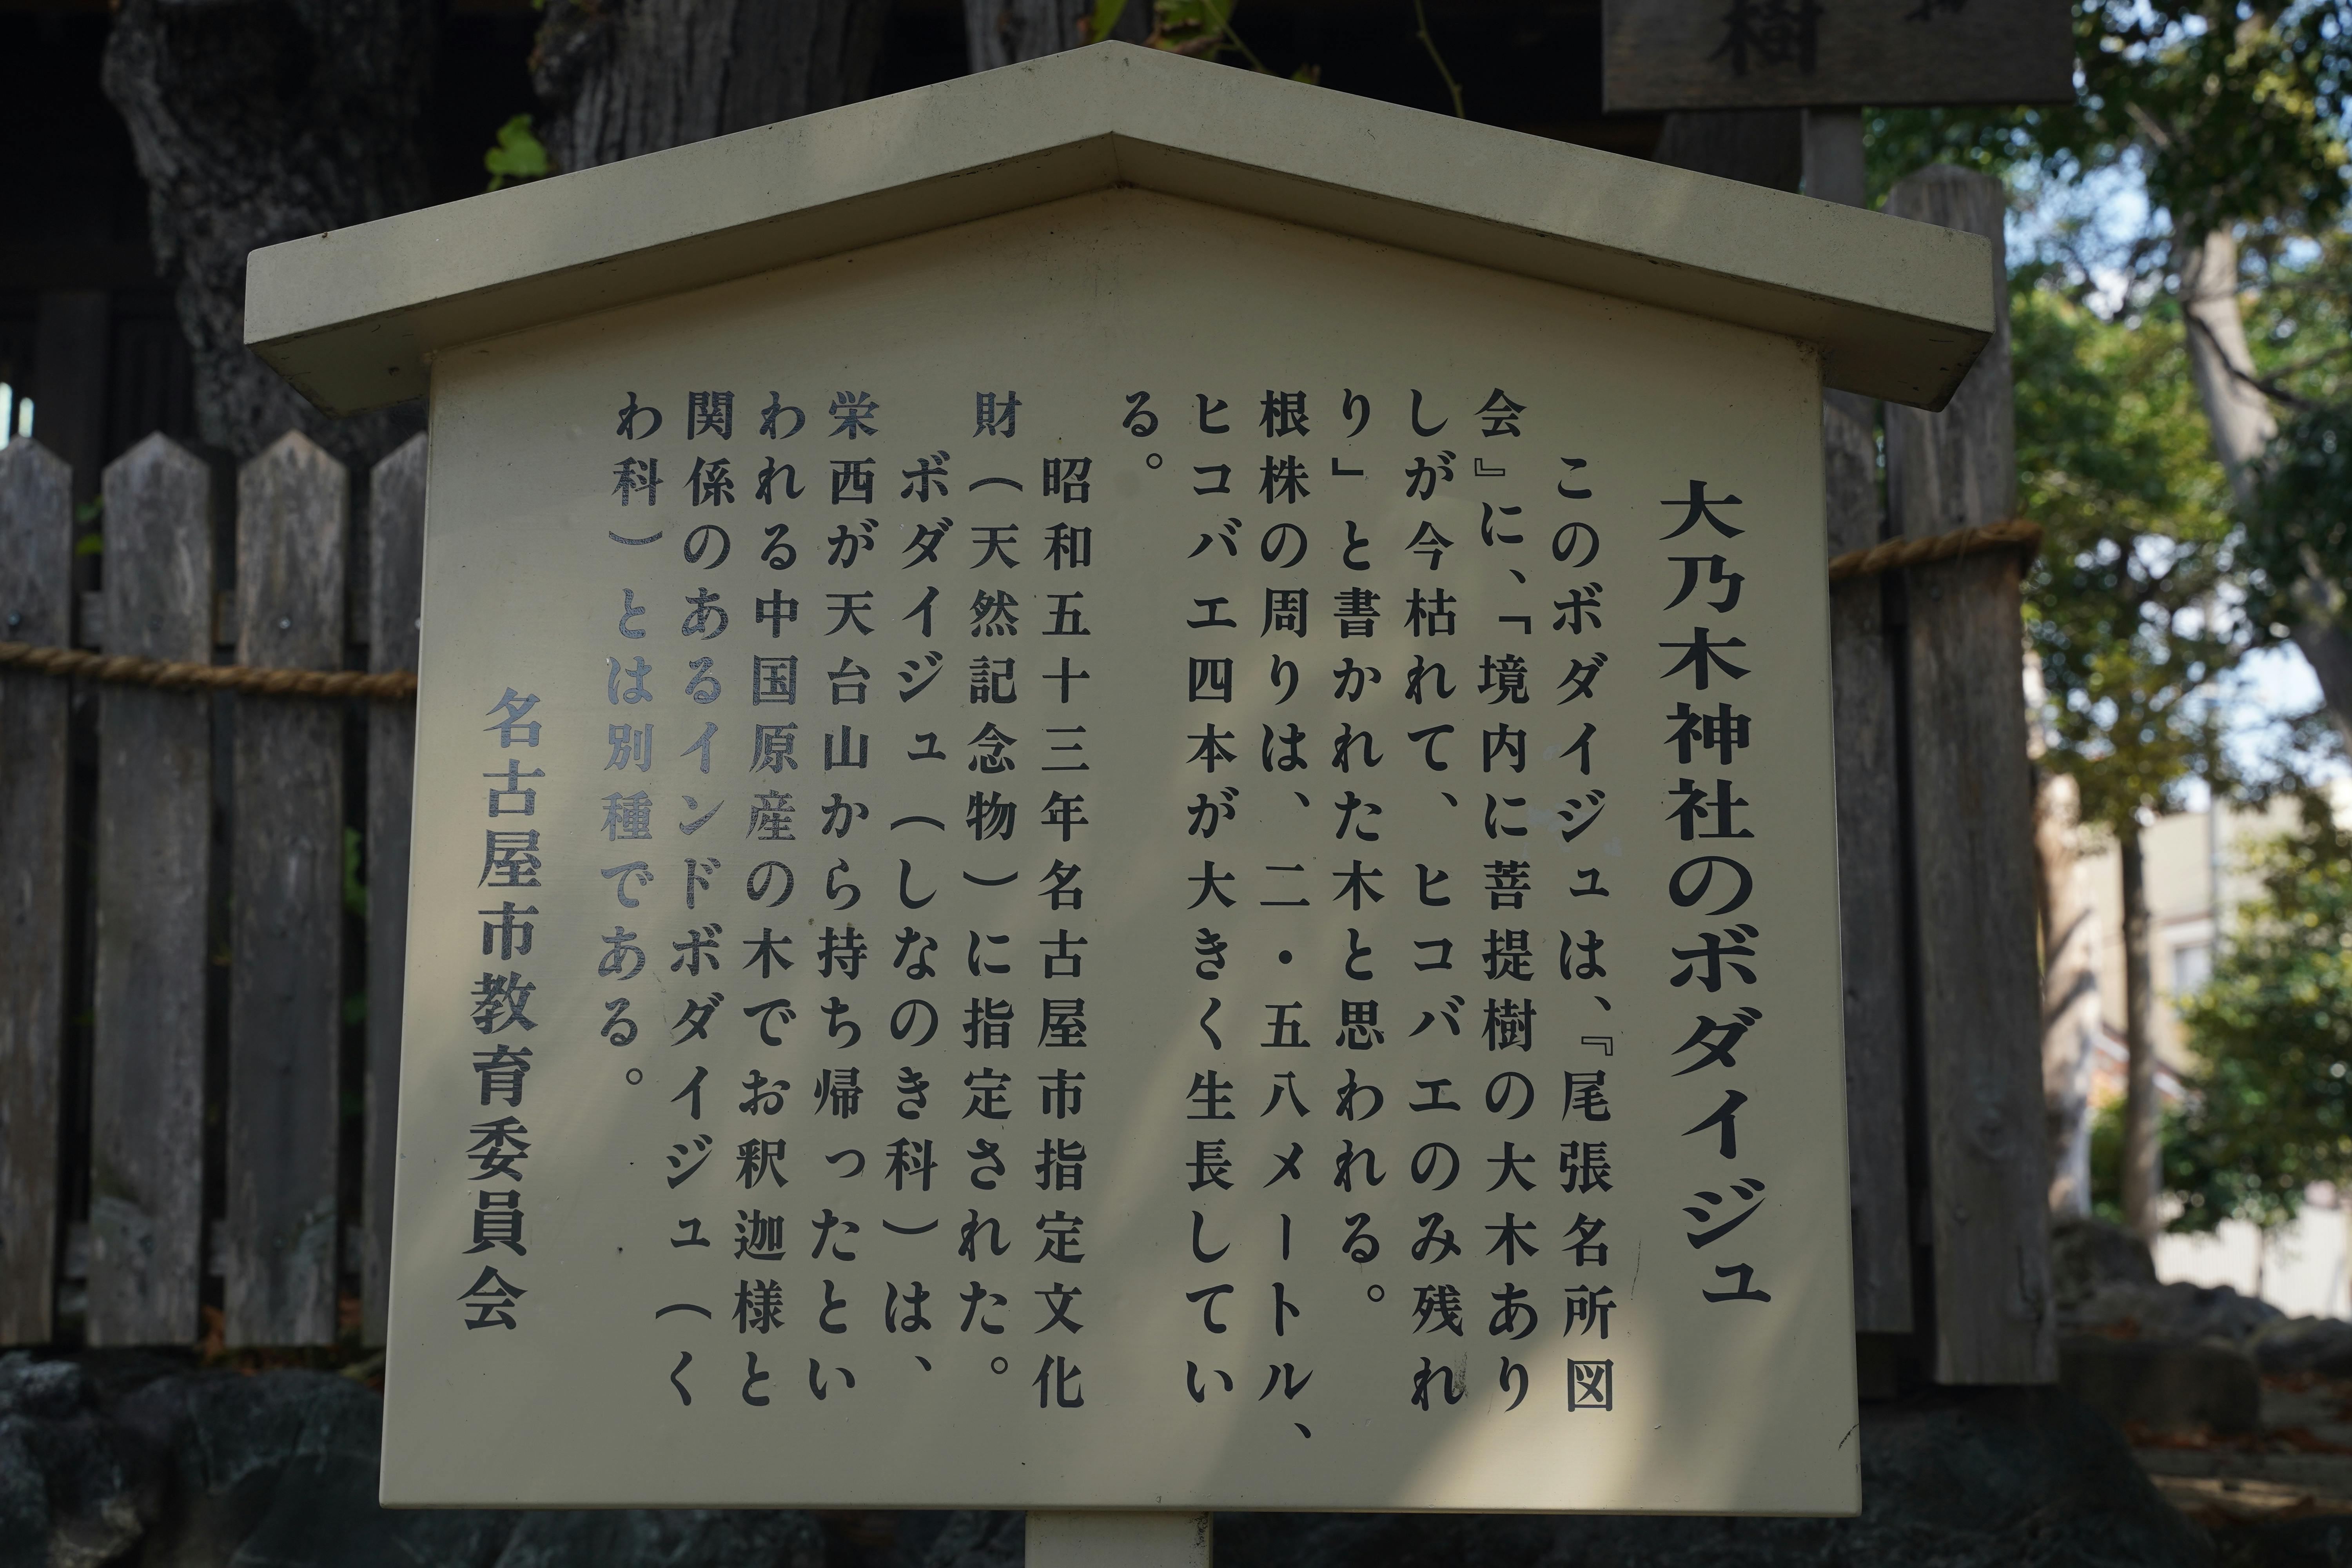 大乃木神社のボダイジュ
このボダイジュは、『尾張名所図
会』に、「境内に菩提樹の大木あり
しが今枯れて、ヒコバエのみ残れ
り」と書かれた木と思われる。
根株の周りは、二・五八メートル、
ヒコバエ四本が大きく生長してい
る。
昭和五十三年名古屋市指定文化
財（天然記念物）に指定された。
ボダイジュ（しなのき科）は、
栄西が天台山から持ち帰ったとい
われる中国原産の木でお釈迦様と
関係のあるインドボダイジュ（く
わ科）とは別種である。
名古屋市教育委員会
樹